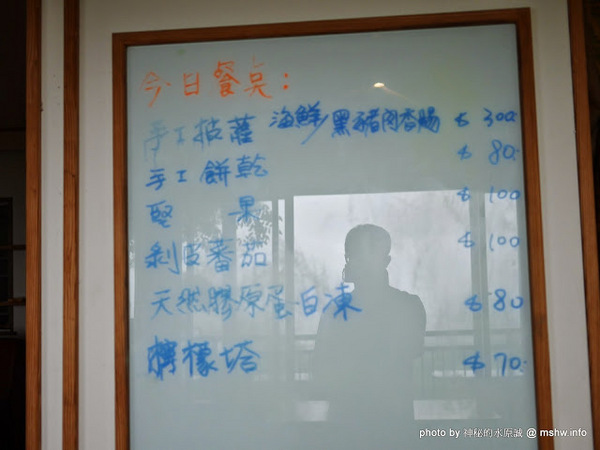 今日餐点:
手工披薩 海鮮/黑豬肉香腸 $ 300.
手工餅乾 $ 80.
堅果 $ 100
剥皮蕃茄 $ 100
天然膠原蛋白凍 $ 80
檸檬塔 $ 70.
photo by 神秘的水原誠 @ mshw.info